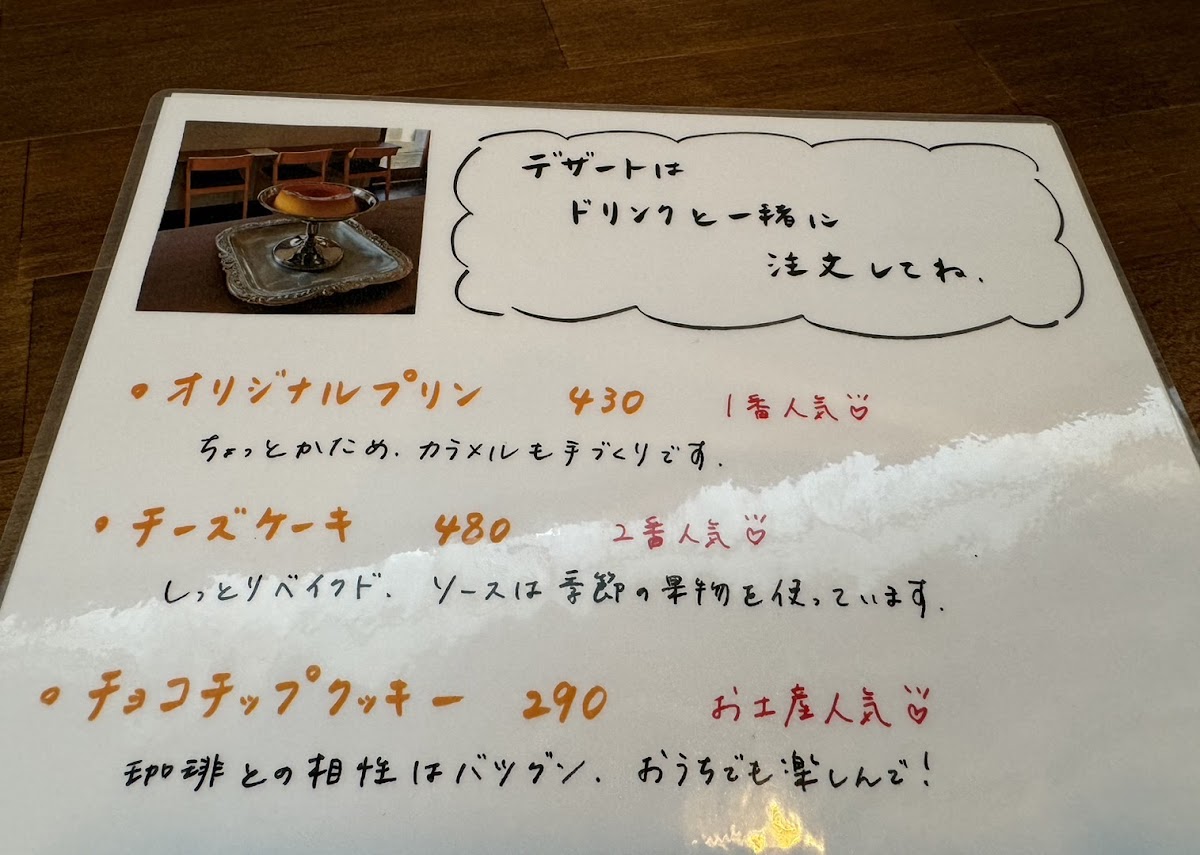 デザートは
ドリンクと一緒に
注文してね.
• オリジナルプリン 430 1番人気
ちょっとかため. カラメルも手づくりです.
• チーズケーキ 480 2番人気
しっとりベイクド. ソースは季節の果物を使っています.
• チョコチップクッキー 290 お土産人気
珈琲との相性はバツグン. おうちでも楽しんで!